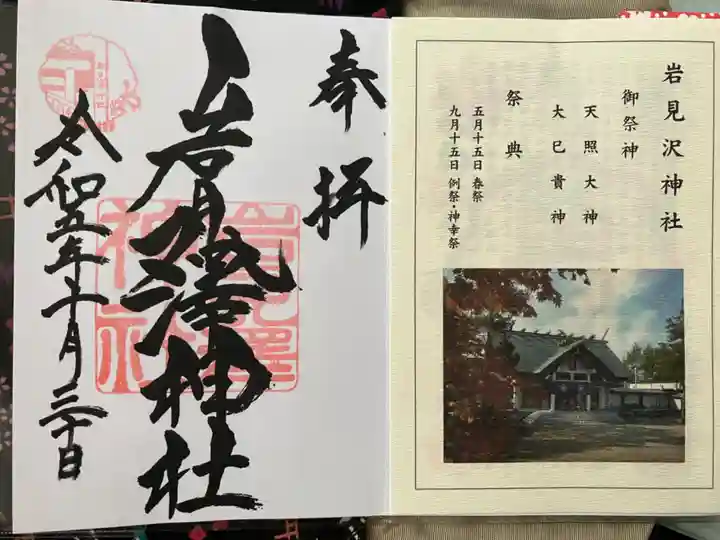 奉拝
岩見澤神社
令和五年十月三十日
岩見沢神社
御祭神
天照大神
大己貴神
祭典
五月十五日 春祭
九月十五日 例祭・神幸祭